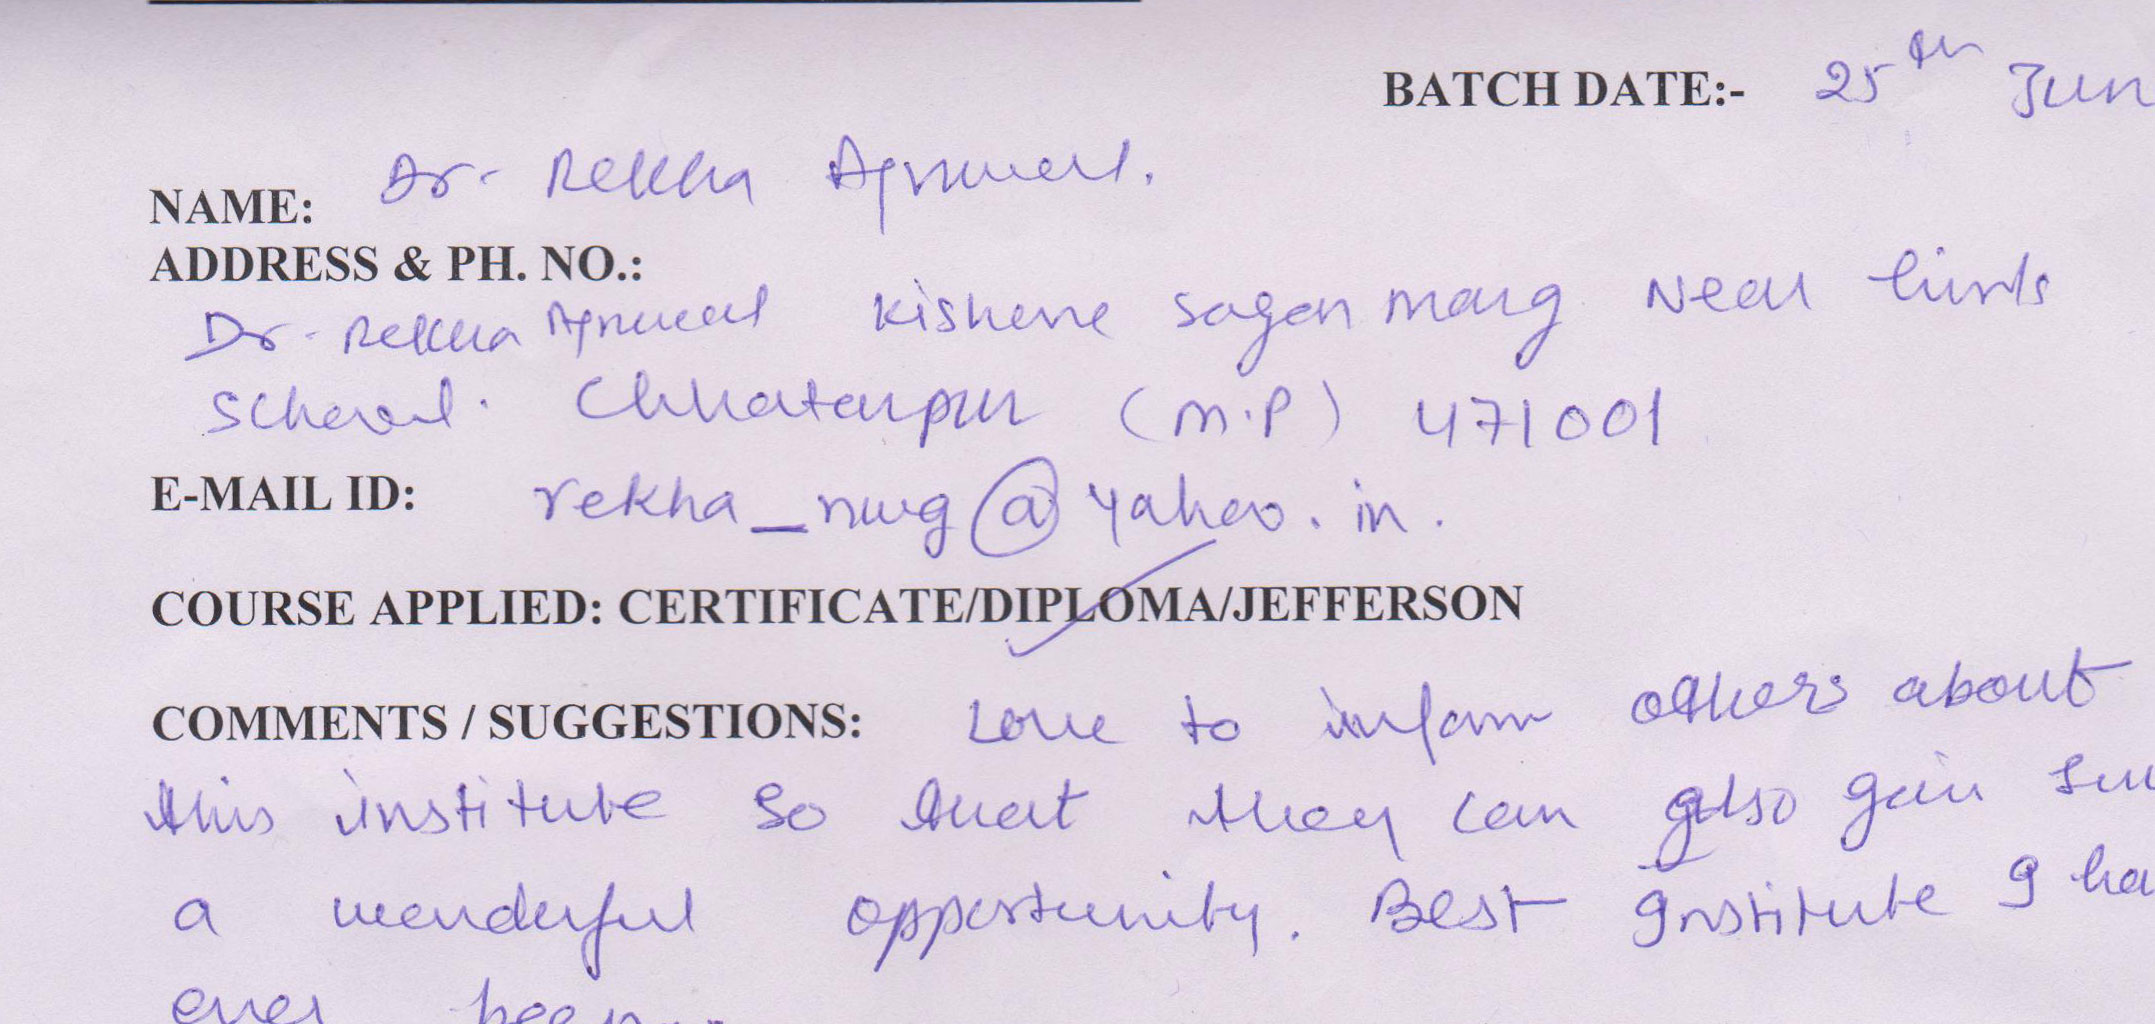 BATCH DATE:- 25th Jun
NAME: Dr. Rekha Agrawal.
ADDRESS & PH. NO.:
Dr. Rekha Agrawal Kishore Sagar Marg Near Girls
School. Chhatarpur (M.P) 471001
E-MAIL ID: rekha_nwg@yahoo.in.
COURSE APPLIED: CERTIFICATE/DIPLOMA/JEFFERSON
COMMENTS / SUGGESTIONS: Love to inform others about
this institute so that they can also gain su
a wonderful opportunity. Best Institute I ha
ever been...